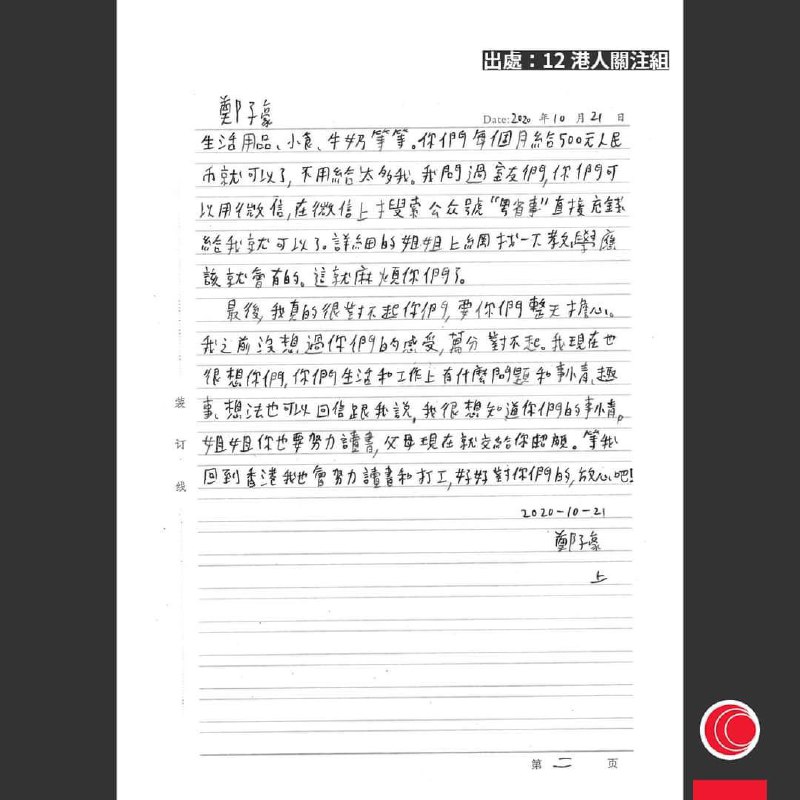 出處：12 港人關注組
鄭子豪
Date: 2020 年 10 月 21 日
生活用品、小食、牛奶等等。你們每個月給500元人民
币就可以了，不用給太多我。我問過室友們，你們可
以用微信，在微信上搜索公众號“粤省事”直接充錢
給我就可以了。詳細的姐姐上網找一下教學應
該就會有的。這就麻煩你們了。
最後，我真的很對不起你們，要你們整天擔心。
我之前沒想過你們的感受，萬分對不起。我現在也
很想你們，你們生活和工作上有什麼問題和事情、趣
事、想法也可以回信跟我說，我很想知道你們的事情。
姐姐你也要努力讀書，父母現在就交給你照顧。等我
回到香港我也會努力讀書和打工，好好對你們的，放心吧！
2020-10-21
鄭子豪
上
装
订
线
第 二 页